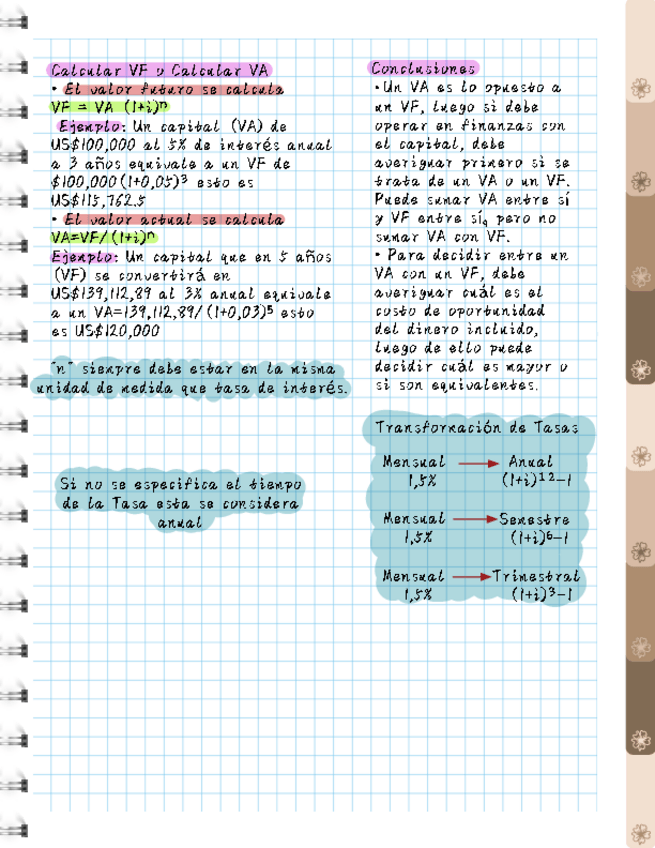 Calcular VF o Calcular VA
• El valor futuro se calcula
VF = VA (1+i)ⁿ
Ejemplo: Un capital (VA) de
US$100,000 al 5% de interés anual
a 3 años equivale a un VF de
$100,000(1+0,05)³ esto es
US$115,762.5
• El valor actual se calcula
VA=VF/(1+i)ⁿ
Ejemplo: Un capital que en 5 años
(VF) se convertirá en
US$139,112,89 al 3% anual equivale
a un VA=139,112,89/(1+0,03)⁵ esto
es US$120,000
"n" siempre debe estar en la misma
unidad de medida que tasa de interés.
Si no se especifica el tiempo
de la Tasa esta se considera
anual
Conclusiones
•Un VA es lo opuesto a
un VF, luego si debe
operar en finanzas con
el capital, debe
averiguar primero si se
trata de un VA o un VF.
Puede sumar VA entre sí
y VF entre sí, pero no
sumar VA con VF.
• Para decidir entre un
VA con un VF, debe
averiguar cuál es el
costo de oportunidad
del dinero incluido,
luego de ello puede
decidir cuál es mayor o
si son equivalentes.
Transformación de Tasas
Mensual → Anual
1,5% (1+i)¹²-1
Mensual → Semestre
1,5% (1+i)⁶-1
Mensual → Trimestral
1,5% (1+i)³-1